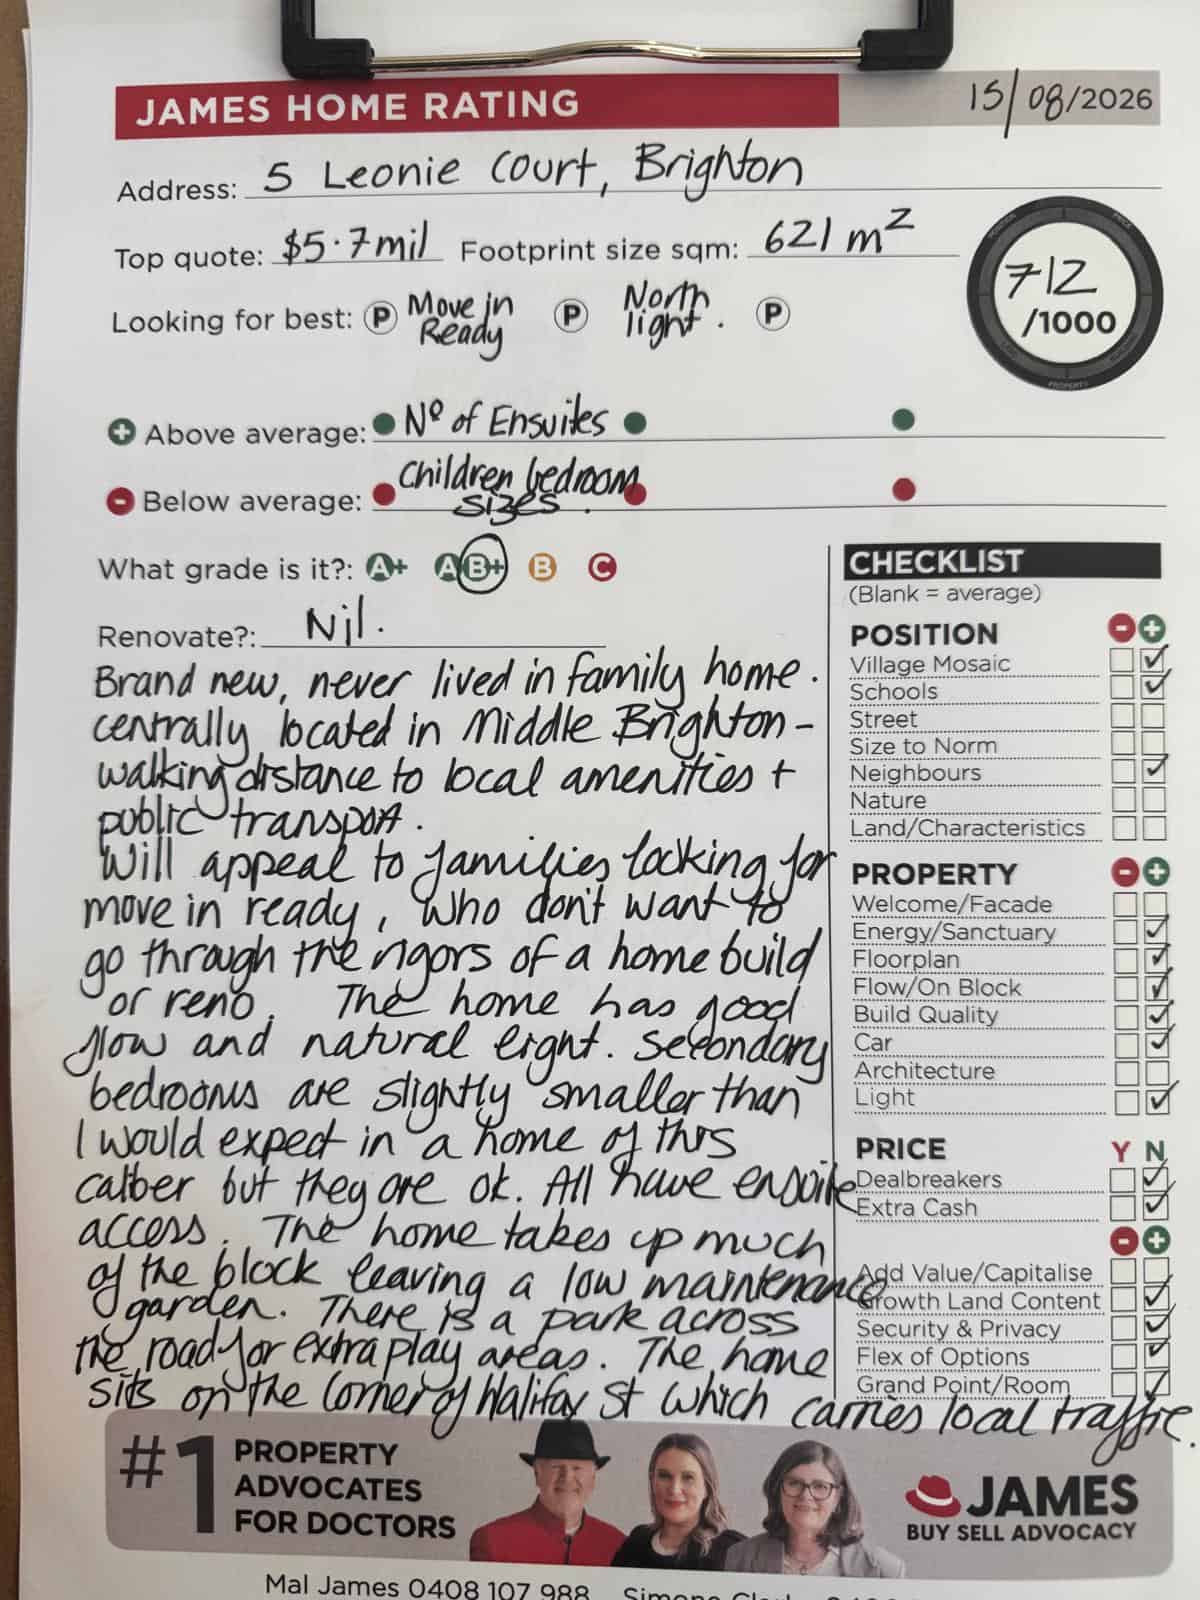 JAMES HOME RATING
15/08/2026
Address: 5 Leonie Court, Brighton
Top quote: $5.7mil Footprint size sqm: 621 m²
712
/1000
Looking for best: P Move in Ready P North light. P
Above average: Nº of Ensuites
Below average: Children bedroom sizes.
What grade is it?: A+ A B+ B C
Renovate?: Nil.
Brand new, never lived in family home.
centrally located in Middle Brighton -
walking distance to local amenities +
public transport.
Will appeal to families looking for
move in ready, who don't want to
go through the rigors of a home build
or reno. The home has good
flow and natural light. Secondary
bedrooms are slightly smaller than
I would expect in a home of this
caliber but they are ok. All have ensuite
access. The home takes up much
of the block leaving a low maintenance
garden. There is a park across
the road for extra play areas. The home
sits on the corner of Halifax St which carries local traffic.
CHECKLIST
(Blank = average)
POSITION - +
Village Mosaic
Schools
Street
Size to Norm
Neighbours
Nature
Land/Characteristics
PROPERTY - +
Welcome/Facade
Energy/Sanctuary
Floorplan
Flow/On Block
Build Quality
Car
Architecture
Light
PRICE Y N
Dealbreakers
Extra Cash
- +
Add Value/Capitalise
Growth Land Content
Security & Privacy
Flex of Options
Grand Point/Room
#1 PROPERTY
ADVOCATES
FOR DOCTORS
JAMES
BUY SELL ADVOCACY
Mal James 0408 107 988 Simone